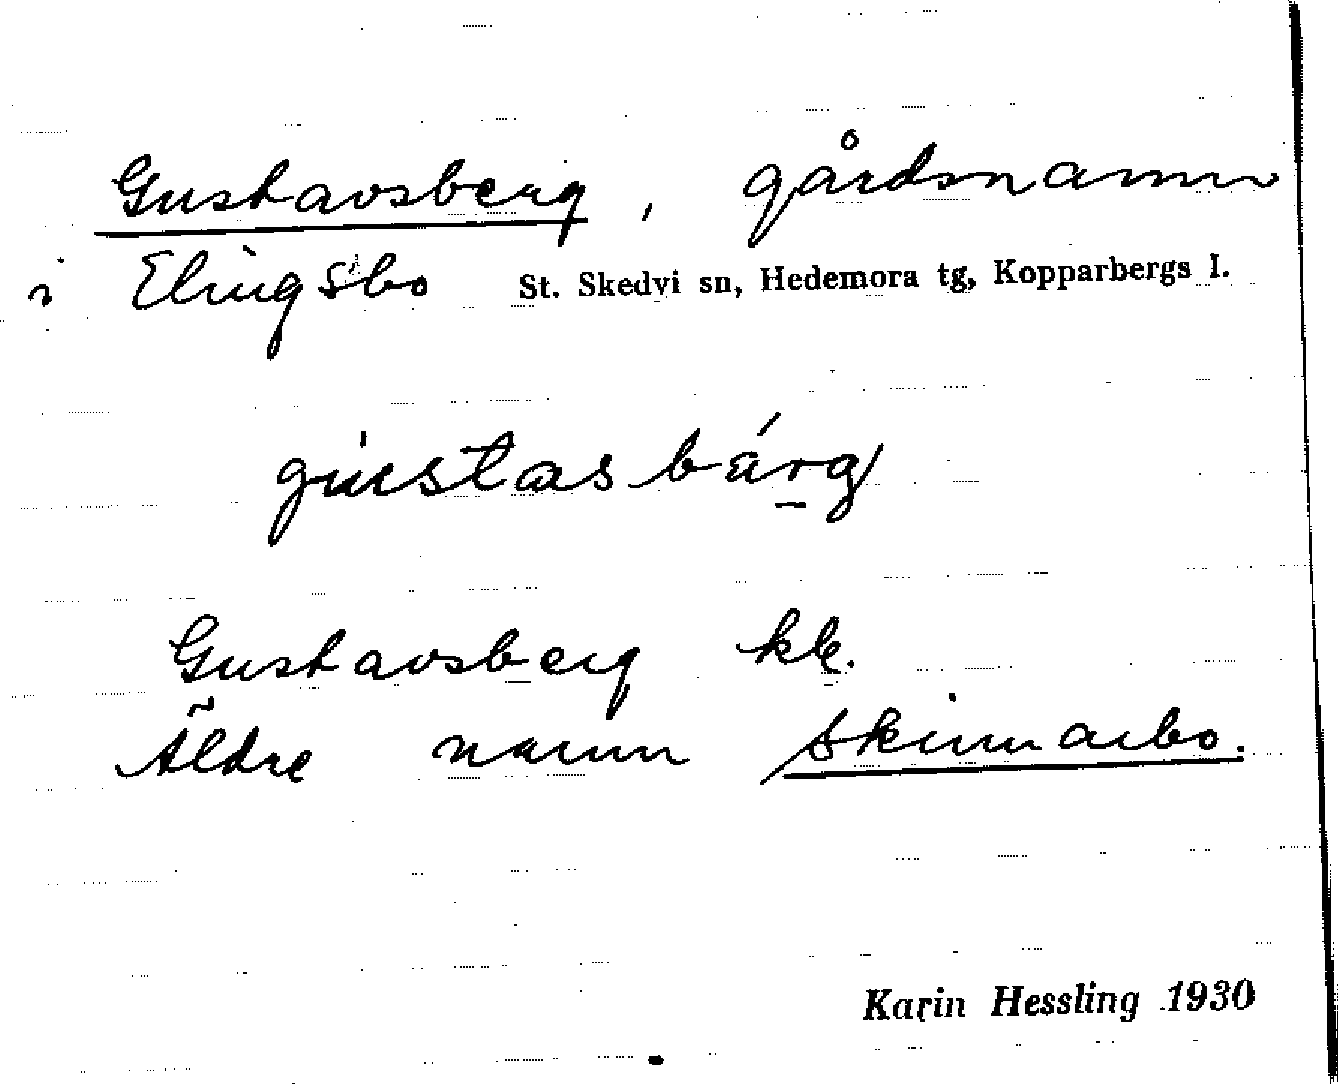 Gustavsberg, gårdsnamn
i Elingsbo St. Skedvi sn, Hedemora tg, Kopparbergs l.
gústasbárg
Gustavsberg kk.
Äldre namn Skinnarbo.
Karin Hessling 1930